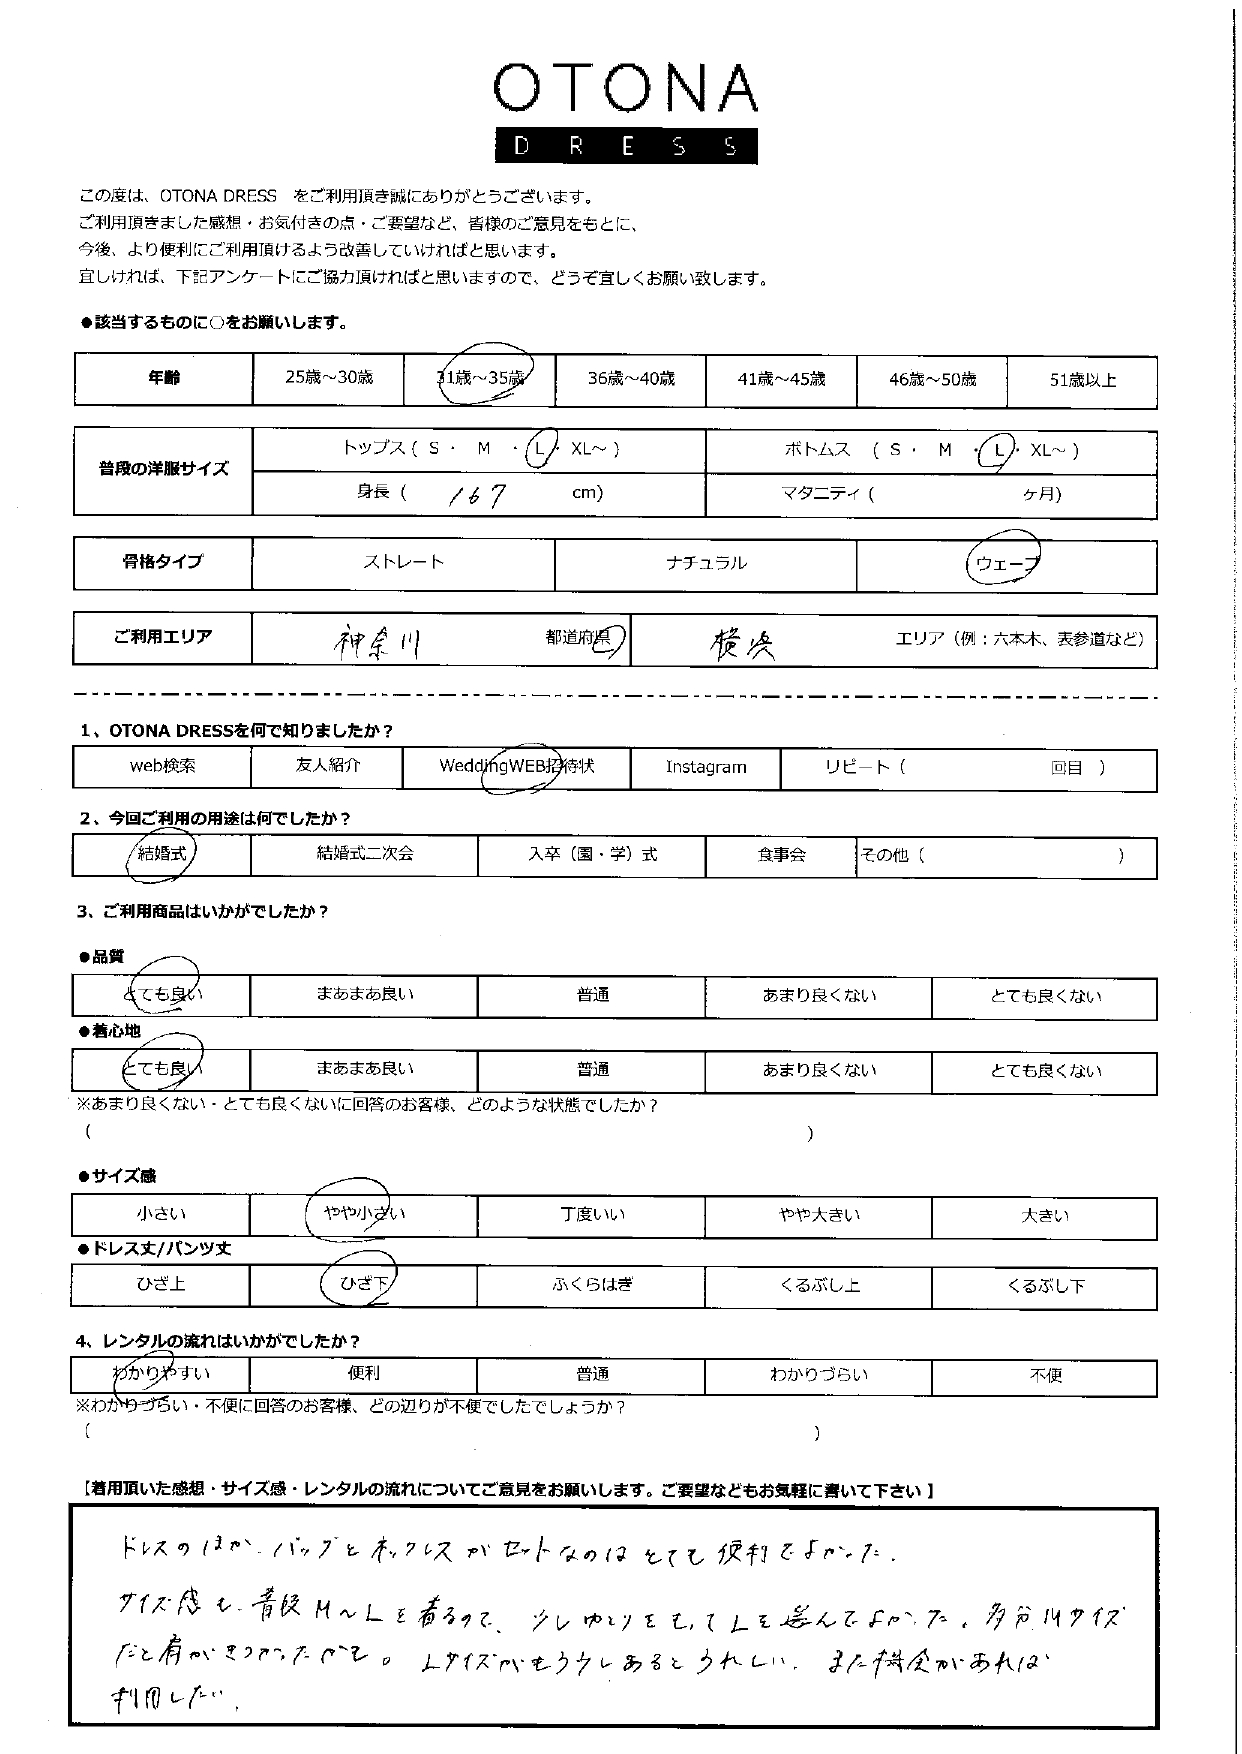 OTONA
DRESS
この度は、OTONA DRESS をご利用頂き誠にありがとうございます。
ご利用頂きました感想・お気付きの点・ご要望など、皆様のご意見をもとに、
今後、より便利にご利用頂けるよう改善していければと思います。
宜しければ、下記アンケートにご協力頂ければと思いますので、どうぞ宜しくお願い致します。
●該当するものに○をお願いします。
年齢 25歳～30歳 31歳～35歳 36歳～40歳 41歳～45歳 46歳～50歳 51歳以上
普段の洋服サイズ トップス ( S ・ M ・ L ・ XL～ ) ボトムス ( S ・ M ・ L ・ XL～ )
身長 ( 167 cm) マタニティ ( ヶ月)
骨格タイプ ストレート ナチュラル ウェーブ
ご利用エリア 神奈川 都道府県 横浜 エリア（例：六本木、表参道など）
1、OTONA DRESSを何で知りましたか？
web検索 友人紹介 WeddingWEB招待状 Instagram リピート（ 回目 ）
2、今回ご利用の用途は何でしたか？
結婚式 結婚式二次会 入卒（園・学）式 食事会 その他（ ）
3、ご利用商品はいかがでしたか？
●品質
とても良い まあまあ良い 普通 あまり良くない とても良くない
●着心地
とても良い まあまあ良い 普通 あまり良くない とても良くない
※あまり良くない・とても良くないに回答のお客様、どのような状態でしたか？
( )
●サイズ感
小さい やや小さい 丁度いい やや大きい 大きい
●ドレス丈/パンツ丈
ひざ上 ひざ下 ふくらはぎ くるぶし上 くるぶし下
4、レンタルの流れはいかがでしたか？
わかりやすい 便利 普通 わかりづらい 不便
※わかりづらい・不便に回答のお客様、どの辺りが不便でしたでしょうか？
( )
【着用頂いた感想・サイズ感・レンタルの流れについてご意見をお願いします。ご要望などもお気軽に書いて下さい】
ドレスのほか、バッグとネックレスがセットなのはとても便利でよかった。
サイズ感も、普段M～Lを着るので、少しゆとりをもってLを選んでよかった。多分Mサイズ
だと肩がきつかったかも。Lサイズがもう少しあるとうれしい。また機会があれば
利用したい。